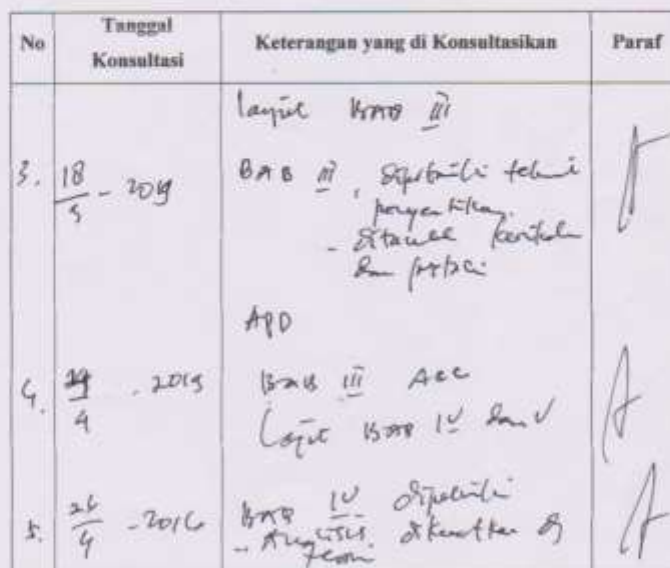 No Tanggal Konsultasi Keterangan yang di Konsultasikan Paraf
lanjut BAB III
3. 18 - 2019 BAB III, diperbaiki teknik
pengetikan.
- ditambah
dan
APD
4. 4 - 2019 BAB III Acc
Lanjut BAB IV dan V
5. 4 BAB IV diperbaiki
- Analisis dikuatkan dg
teori